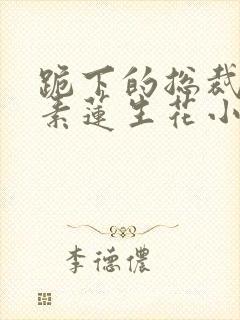 跪下的总裁
素莲生花小
李德儂